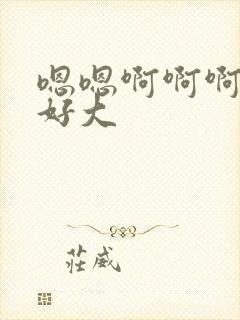 嗯嗯啊啊啊
好大
莊威